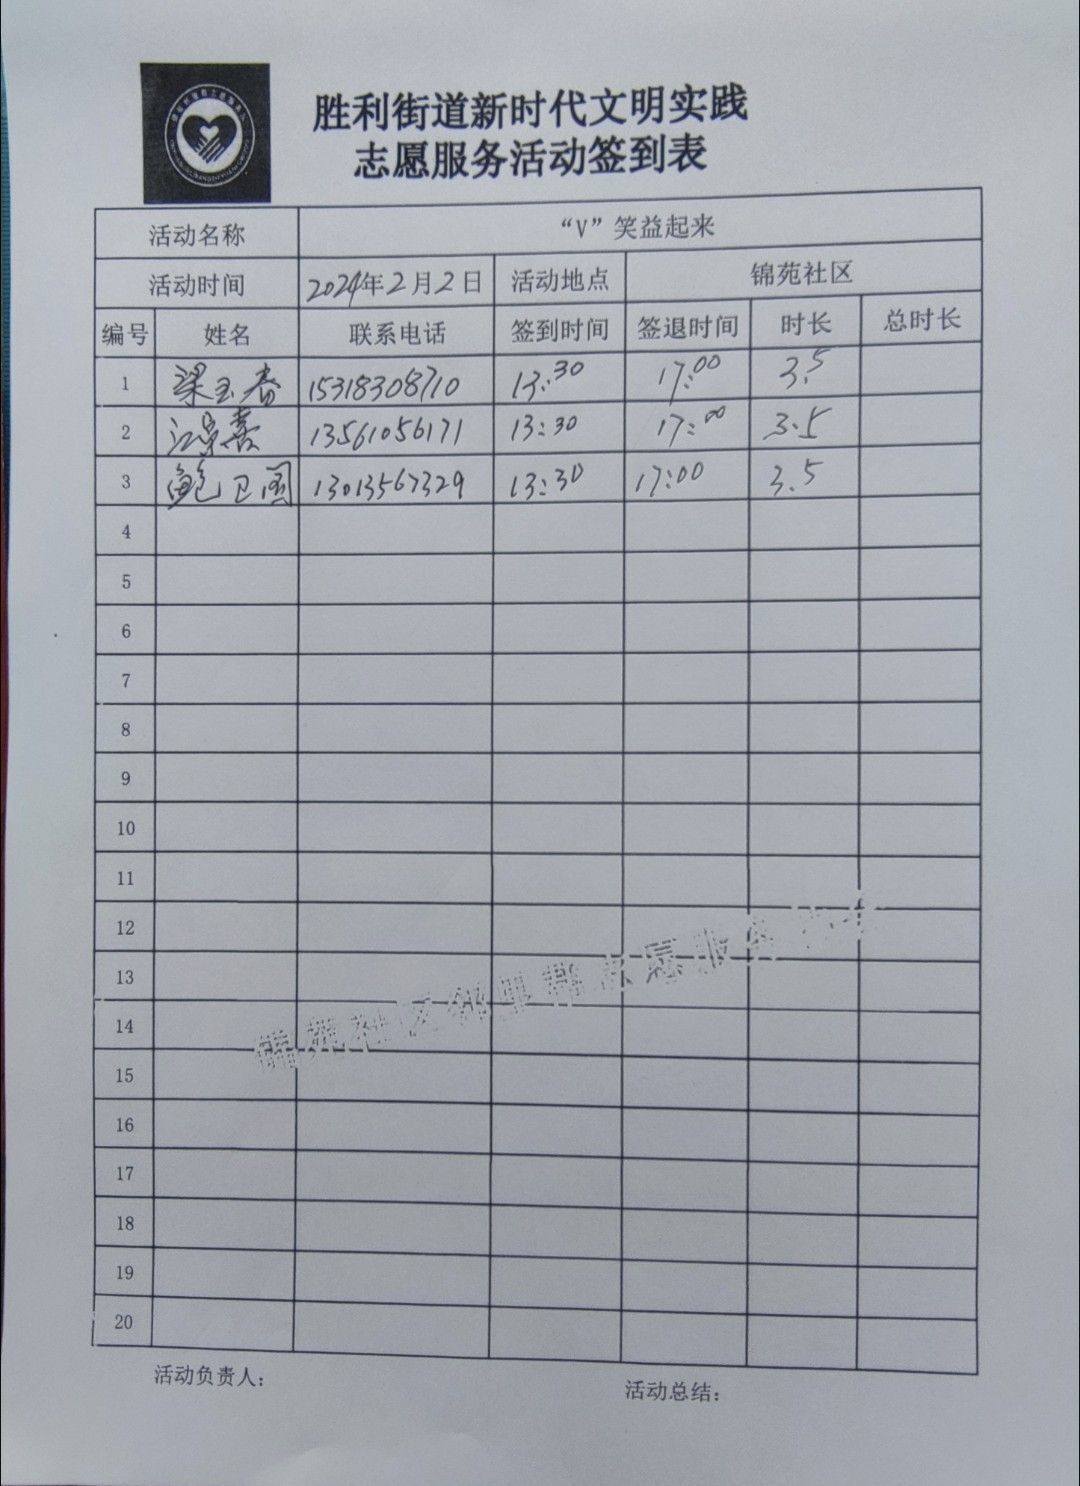 胜利街道新时代文明实践
志愿服务活动签到表
活动名称 “V”笑益起来
活动时间 2024年2月2日 活动地点 锦苑社区
编号 姓名 联系电话 签到时间 签退时间 时长 总时长
1 梁玉春 15318308710 13:30 17:00 3.5
2 13561056171 13:30 17:00 3.5
3 鲍卫国 13013567329 13:30 17:00 3.5
4
5
6
7
8
9
10
11
12
13
14
15
16
17
18
19
20
锦苑社区邻里帮志愿服务
活动负责人:
活动总结: